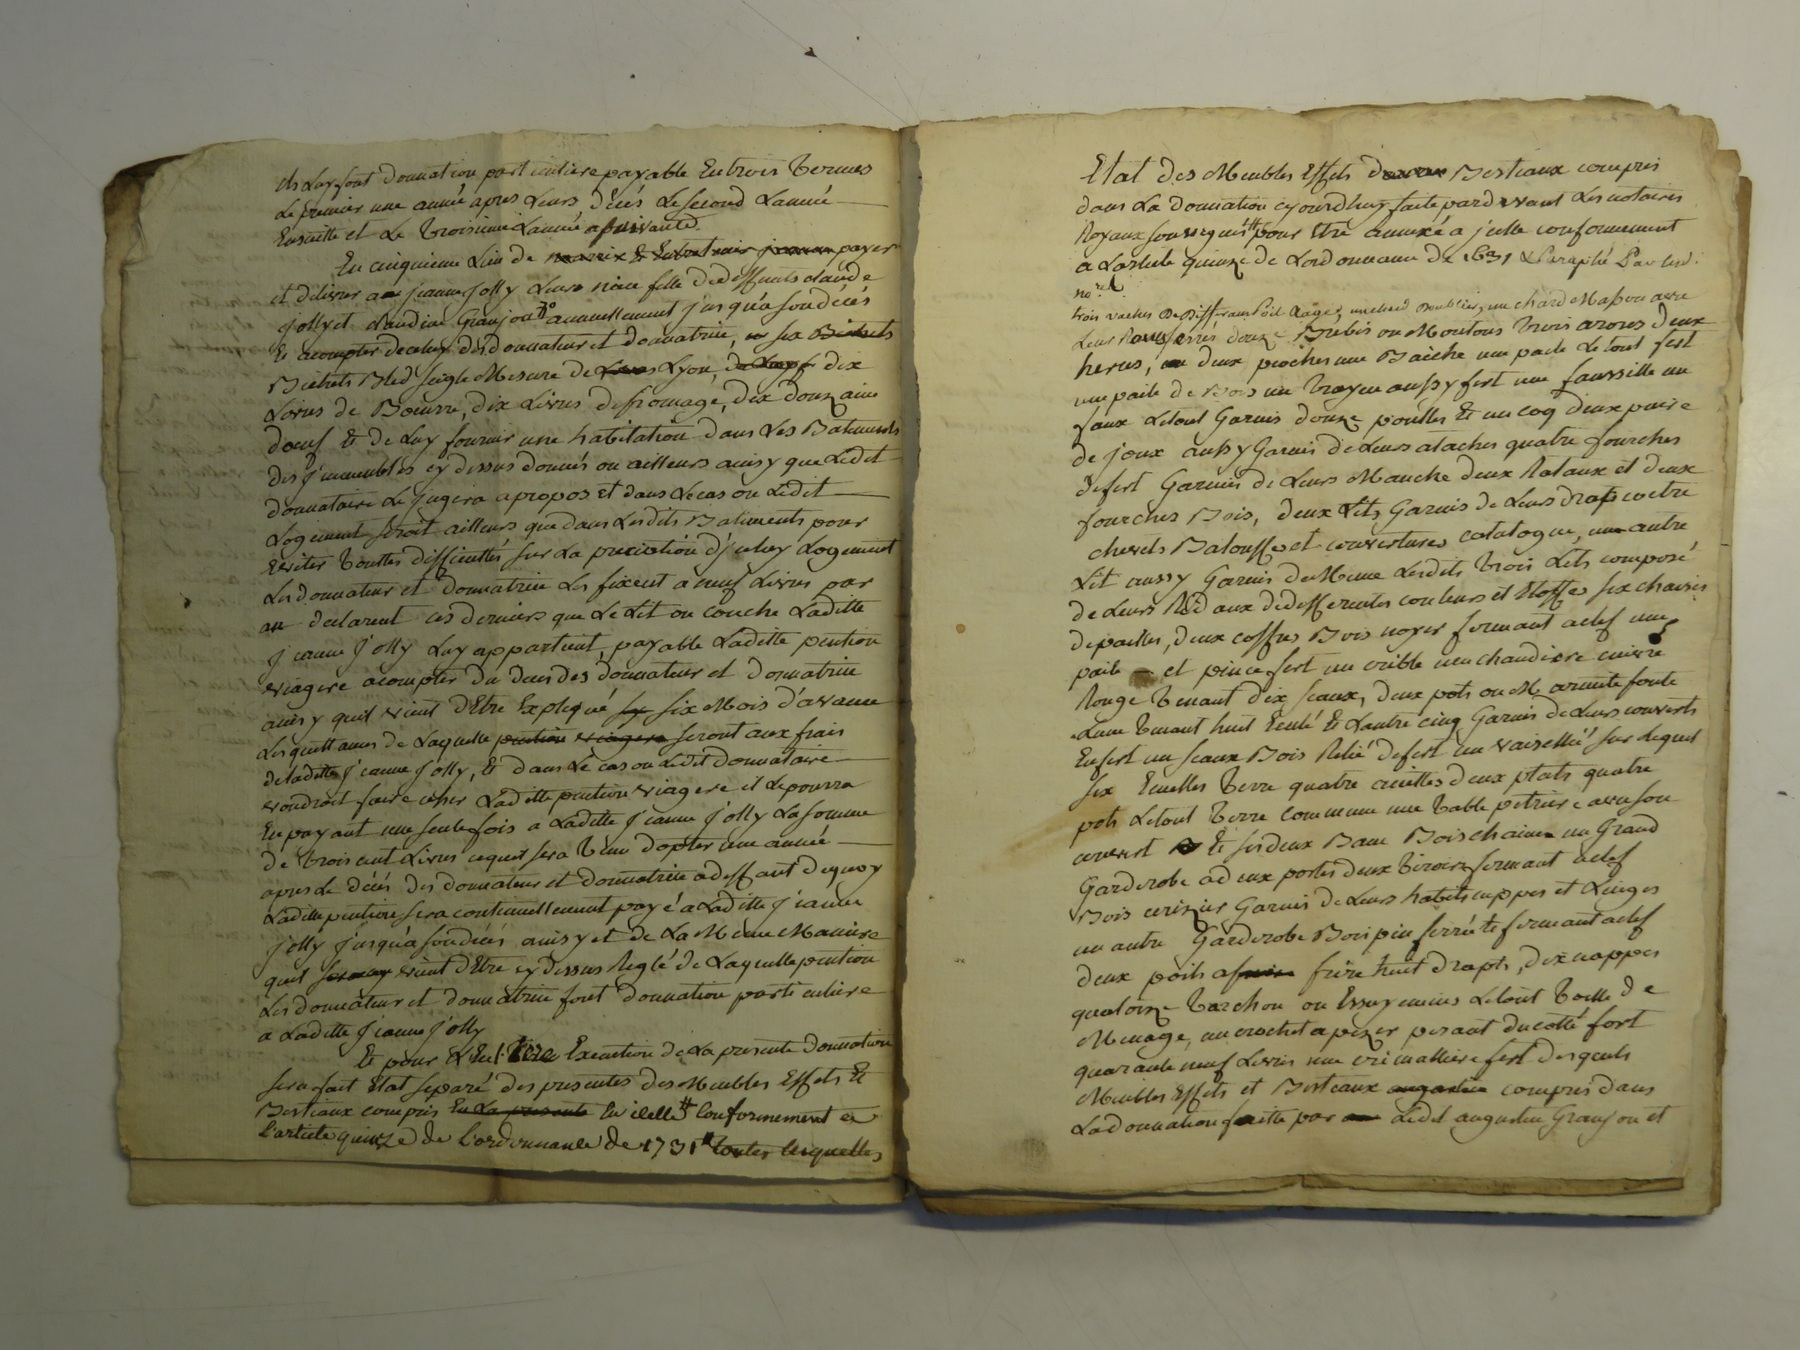 ils Luy font donnation particuliere payable En trois termes
Le premier une année apres Leurs décés Le second L'année
Ensuitte et Le troisieme L'année a suivante
En cinquieme Lieu de payer
et délivrer a jeanne jolly Leur niece fille de deffunts claude
jolly et claudine Granjon annuellement jusqu'a son décés
Et acompter de celuy des donnateur et donnatrice, six Bichets
Bichets Bled seigle Mesure de Lyon, dix
Livres de Boeurre, dix Livres de fromage, dix douzaine
d'oeuf Et de Luy fournir une habitation dans Les Batiments
des jmmeubles cy dessus donnés ou ailleurs ainsy que Ledit
donnataire Le jugera apropos et dans Le cas ou Ledit
Logement seroit ailleurs que dans Lesdits Batiments pour
Eviter touttes difficultés sur La d'jceluy Logement
Les donnateur et donnatrice Le fixent a neuf Livres par
an declarent ces derniers que Le Lit ou couche Laditte
jeanne jolly Luy appartient, payable Laditte pention
viagere acompter du deces des donnateur et donnatrice
ainsy quil vient d'Etre Expliqué six Mois d'avance
Les quittances de Laquelle pention viagere seront aux frais
de laditte jeanne jolly, Et dans Le cas ou Ledit donnataire
voudroit faire cesser Laditte pention viagere il Le pourra
En payant une seule fois a Laditte jeanne jolly La somme
de trois cent Livres cequ'il sera tenu d'opter une année
apres Le décés des donnateur et donnatrice a deffaut dequoy
Laditte pention sera continuellement payé a Laditte jeanne
jolly jusqu'a son décés ainsy et de La Meme Maniere
quil vient d'Etre cy dessus Reglé de Laquelle pention
Les donnateur et donnatrice font donnation particuliere
a Laditte jeanne jolly
Et pour Execution de La presente donnation
sera fait Etat separé des presentes des Meubles Effets Et
Bestiaux compris En La presente En icelle conformement a
l'article quinze de l'ordonnance de 1731 toutes lesquelles
Etat des Meubles Effets Bestiaux compris
dans La donnation cejourdhuy faite pardevant Les notaires
Royaux soussignés pour Etre annexé a jcelle conformement
a Larticle quinze de Lordonnance de 1631 & Paraphé Par lesd.
nores
trois vaches De Differant Poil & age, un char a Maison avec
Leurs Roues ferrés douze Brebis ou Moutons trois deux
herses, deux pioches une Baiche une pasle Le tout fert
une paile de Bois un aussy fert une faussille un
faux Letout Garnis douze poulles Et un coq deux paire
de joux aussy Garnis de Leurs ataches quatre fourches
de fert Garnies de Leurs Manche deux Rataux et deux
fourches Bois, deux Lits Garnis de Leurs draps coetre
chevets Balouffe et couvertures catalogne, un autre
Lit aussy Garnis de Meme Lesdits trois Lits composé
de Leurs Ridaux de differentes couleurs et Etoffes six chaises
de pailles, deux coffres Bois noyer fermant aclef une
paile et pince fert un crible une chaudiere cuivre
Rouge tenant dix seaux, deux pots ou Marmite fonte
Lune tenant huit Et Lautre cinq Garnis de Leurs couverts
En fert un seaux Bois Relié de fert un sur Lequel
six Ecuelles terre quatre deux plats quatre
pots Letout terre commune une table petriere avec son
couvert Et ses deux Banc Bois chaine un Grand
Garderobe a deux portes deux tiroirs fermant aclef
Bois cerizier Garnis de Leurs habits nippes et Linges
un autre Garderobe Bois pin ferré Et fermant aclef
deux poils a frire huit draps, dix nappes
quatorze torchon ou Essuymains Letout toille de
Menage, un crochet a pezer pesant du cotté fort
quarante neuf Livres une cremalliere fert desquels
Meubles Effets et Bestiaux compris dans
La donnation faitte par Ledit augustin Granjon et